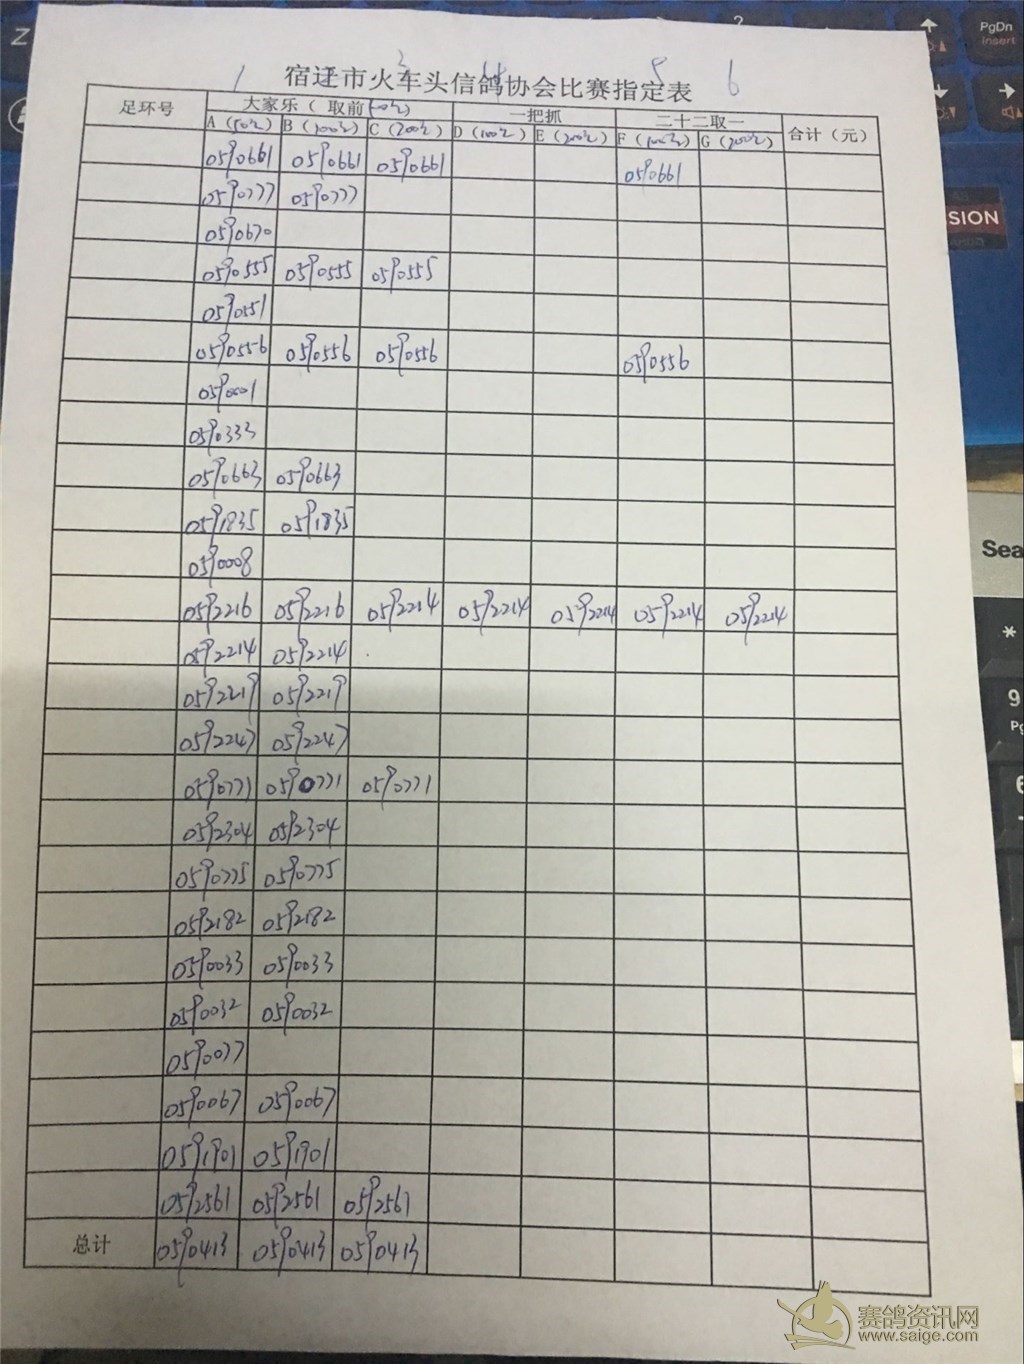 1 2 3 4 5 6
宿迁市火车头信鸽协会比赛指定表
足环号 大家乐（ 取前 ） 一把抓 二十二取一 合计（元）
A（50元） B（100元） C（200元） D（100元） E（200元） F（100元） G（200元）
0590661 0590661 0590661 0590661
0590777 0590777
0590670
0590555 0590555 0590555
0590551
0590556 0590556 0590556 0590556
0590001
0590333
0590663 0590663
0591835 0591835
0590008
0592216 0592216 0592214 0592214 0592214 0592214 0592214
0592214 0592214
0592219 0592219
0592247 0592247
0590771 0590771 0590771
0592304 0592304
0590775 0590775
0592182 0592182
0590033 0590033
0590032 0590032
0590077
0590067 0590067
0591901 0591901
0592561 0592561 0592561
总计 0590413 0590413 0590413
PgDn
Insert
SION
Sea
*
9
Pg
6
Z
?
赛鸽资讯网
www.saige.com